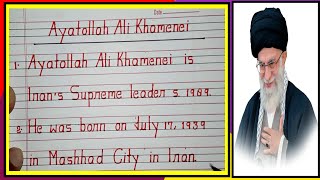 Date
Ayatollah Ali Khamenei
1. Ayatollah Ali Khamenei is
Iran's Supreme leader s. 1989.
2. He was born on July 17, 1939
in Mashhad City in Iran.